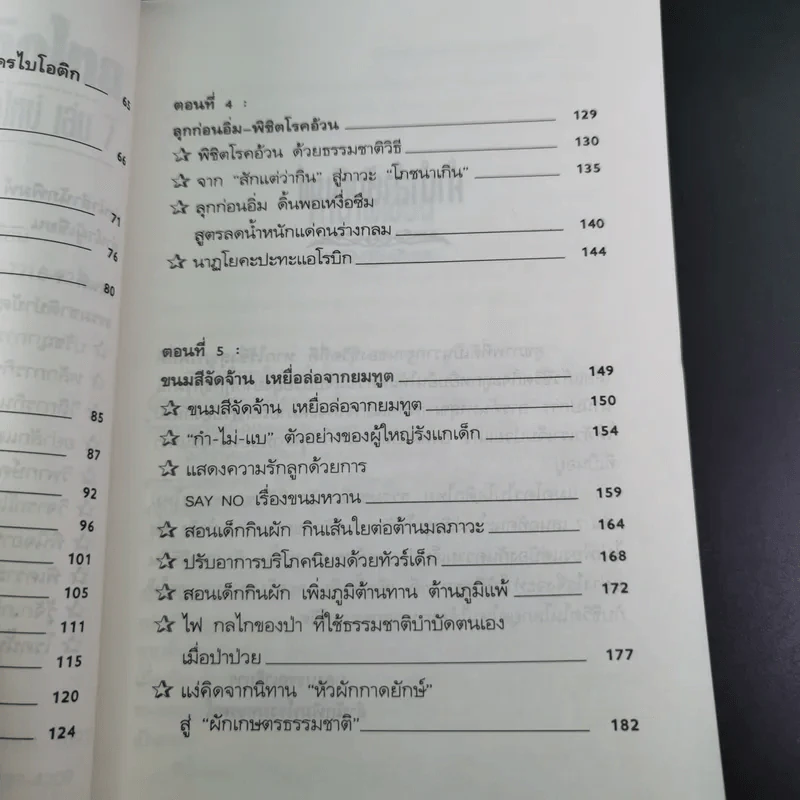 ครไบโอติก
63
66
71
76
80
85
87
92
96
101
105
111
115
120
124
ตอนที่ 4 :
ลุกก่อนอิ่ม-พิชิตโรคอ้วน 129
พิชิตโรคอ้วน ด้วยธรรมชาติวิธี 130
จาก "สักแต่ว่ากิน" สู่ภาวะ "โภชนาเกิน" 135
ลุกก่อนอิ่ม ดิ้นพอเหงื่อซึม
สูตรลดน้ำหนักแด่คนร่างกลม 140
นาฏโยคะปะทะแอโรบิก 144
ตอนที่ 5 :
ขนมสีจัดจ้าน เหยื่อล่อจากยมทูต 149
ขนมสีจัดจ้าน เหยื่อล่อจากยมทูต 150
"กำ-ไม่-แบ" ตัวอย่างของผู้ใหญ่รังแกเด็ก 154
แสดงความรักลูกด้วยการ
SAY NO เรื่องขนมหวาน 159
สอนเด็กกินผัก กินเส้นใยต่อต้านมลภาวะ 164
ปรับอาการบริโภคนิยมด้วยทัวร์เด็ก 168
สอนเด็กกินผัก เพิ่มภูมิต้านทาน ต้านภูมิแพ้ 172
ไฟ กลไกของป่า ที่ใช้ธรรมชาติบำบัดตนเอง
เมื่อป่าป่วย 177
แง่คิดจากนิทาน "หัวผักกาดยักษ์"
สู่ "ผักเกษตรธรรมชาติ" 182